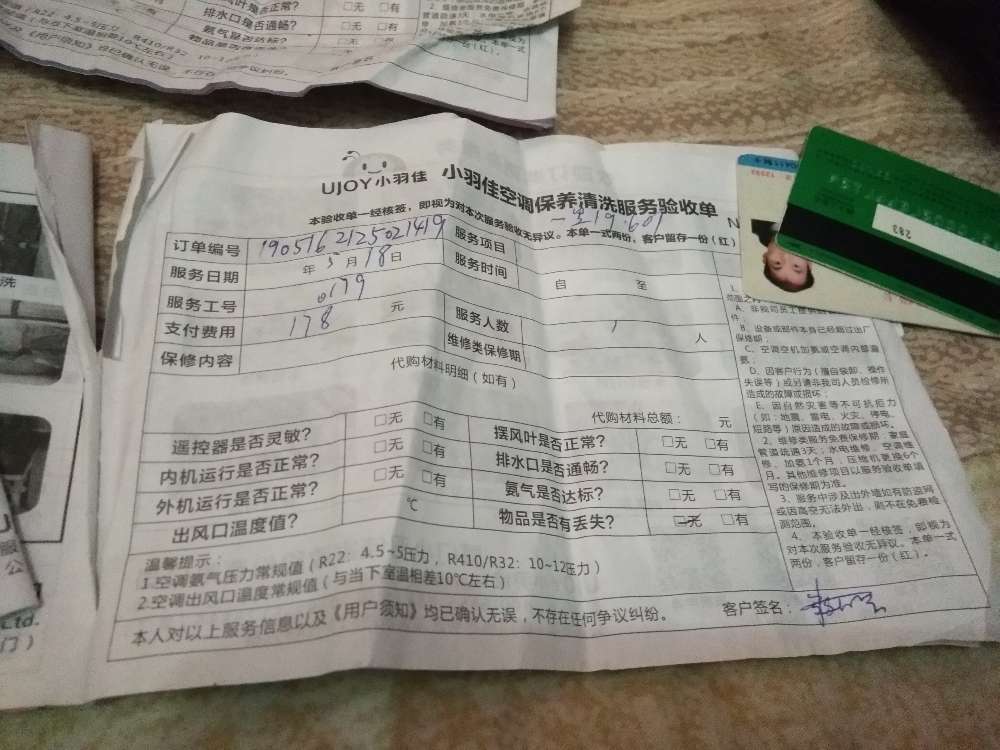 排水口是否通畅？ □无 □有
氨气是否达标？ □无 □有
UJOY小羽佳
小羽佳空调保养清洗服务验收单
本验收单一经核签，即视为对本次服务验收无异议。本单一式两份，客户留存一份（红）
订单编号 190516 2125021419 服务项目
服务日期 年 5 月 18 日 服务时间 自 至
服务工号 0179
支付费用 178 元 服务人数 1 人
保修内容 维修类保修期
代购材料明细（如有）
代购材料总额： 元
遥控器是否灵敏？ □无 □有 摆风叶是否正常？ □无 □有
内机运行是否正常？ □无 □有 排水口是否通畅？ □无 □有
外机运行是否正常？ □无 □有 氨气是否达标？ □无 □有
出风口温度值？ ℃ 物品是否有丢失？ □无 □有
温馨提示：
1.空调氨气压力常规值（R22：4.5~5压力，R410/R32：10~12压力）
2.空调出风口温度常规值（与当下室温相差10℃左右）
本人对以上服务信息以及《用户须知》均已确认无误，不存在任何争议纠纷。 客户签名：
A、非我司员工提供
件；
B、设备或部件本身已经超过出厂
保修期；
C、空调空机加氨或空调内部漏
氨；
D、因客户行为（擅自装卸、操作
失误等）或另请非我司人员检修所
造成的故障或损坏；
E、因自然灾害等不可抗拒力
（如：地震、雷电、火灾、停电、
短路等）原因造成的故障或损坏。
2、维修类服务免费保修期：家庭
管道疏通3天；水电维修、空调维
修、加氨1个月，压缩机更换6个
月。其他维修项目以服务验收单填
写的保修期为准。
3、服务中涉及出外墙如有防盗网
或因高空无法外出，则不在免费检
测范围。
4、本验收单一经核签，即视为
对本次服务验收无异议。本单一式
两份，客户留存一份（红）。
283